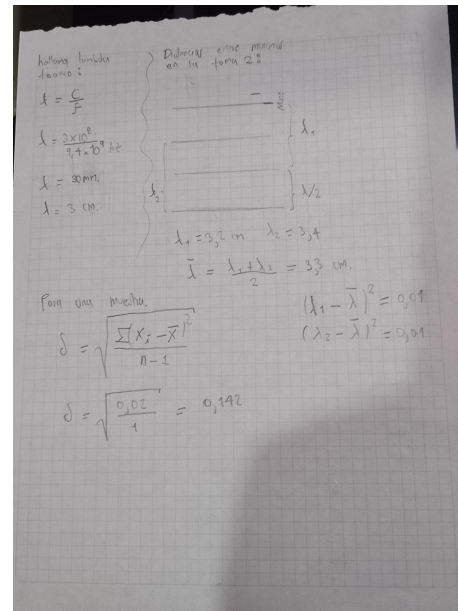 hallamos lambda
teorico :
λ = c/f
λ = 3x10⁸ / 9,4x10⁹ hz
λ = 30mm.
λ = 3 cm.
Distancias entre minimos
en la toma 2:
λ₁
λ₂
λ/2
λ₁ = 3,2 cm λ₂ = 3,4
λ̄ = (λ₁+λ₂)/2 = 3,3 cm.
Para una muestra.
δ = √(Σ(Xᵢ-X̄)²/(n-1))
(λ₁ - λ̄)² = 0,01
(λ₂ - λ̄)² = 0,01
δ = √(0,02/1) = 0,142